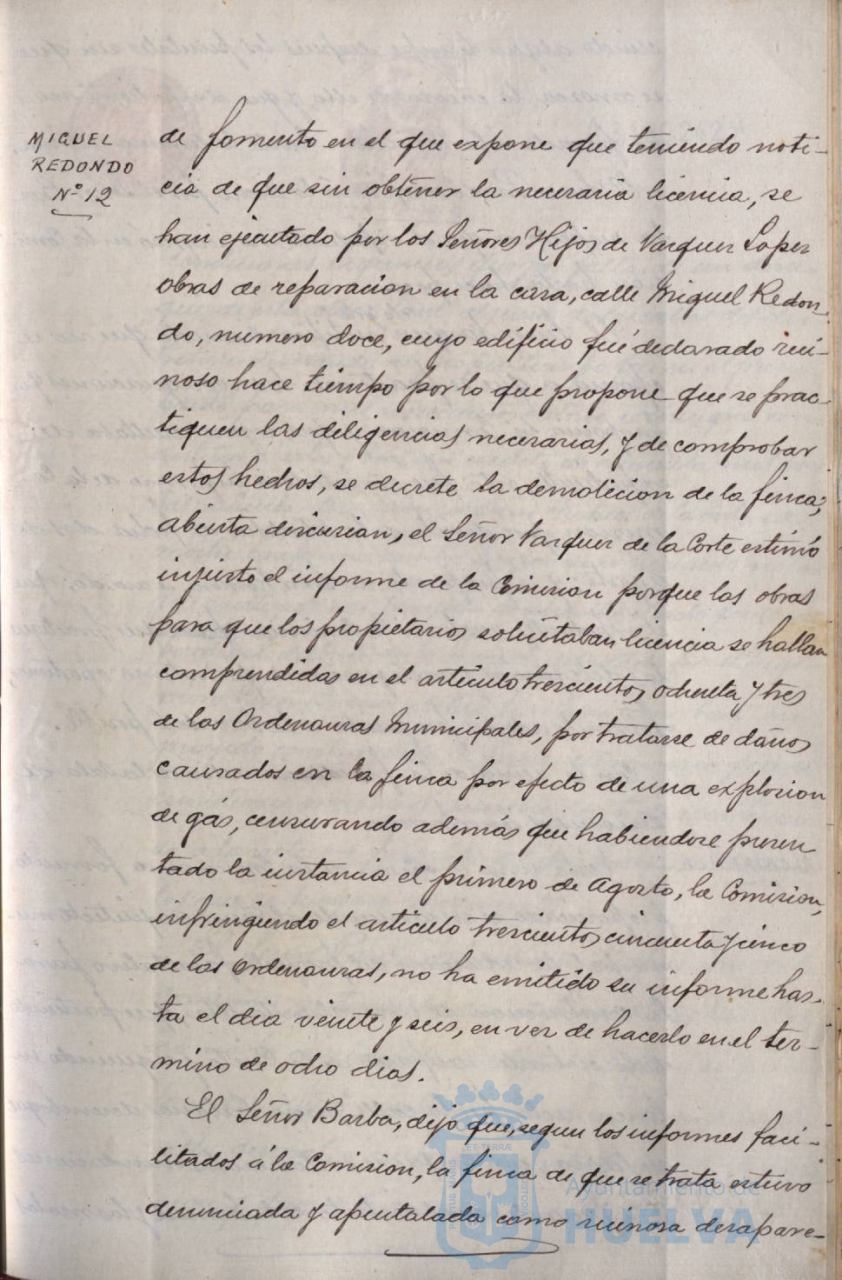 MIGUEL
REDONDO
Nº 12
de fomento en el que expone que teniendo noti-
cia de que sin obtener la necesaria licencia, se
han ejecutado por los Señores Hijos de Vazquez Lopez
obras de reparacion en la casa, calle Miguel Redon-
do, numero doce, cuyo edificio fué declarado rui-
noso hace tiempo por lo que propone que se prac-
tiquen las diligencias necesarias, y de comprobar
estos hechos, se decrete la demolicion de la finca;
abierta discusion, el Señor Vazquez de la Corte estimó
injusto el informe de la Comision porque las obras
para que los propietarios solicitaban licencia se hallan
comprendidas en el articulo trescientos ochenta y tres
de las Ordenanzas Municipales, por tratarse de daños
causados en la finca por efecto de una explosion
de gás, censurando además que habiendose presen
tado la instancia el primero de Agosto, la Comision,
infringiendo el articulo trescientos cincuenta y cinco
de las Ordenanzas, no ha emitido su informe has-
ta el dia veinte y seis, en vez de hacerlo en el ter-
mino de ocho dias.
El Señor Barba, dijo que, segun los informes faci-
litados á la Comision, la finca de que se trata estuvo
denunciada y apuntalada como ruinosa desapare-
Ayuntamiento de
HUELVA